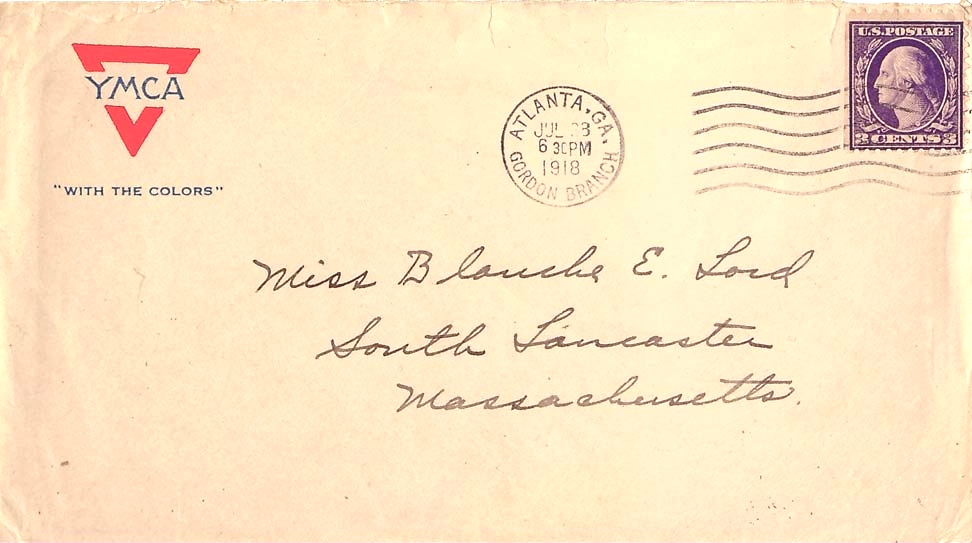 YMCA
"WITH THE COLORS"
ATLANTA, GA.
JUL 23
6 30PM
1918
GORDON BRANCH
U.S. POSTAGE
3 CENTS 3
Miss Blanche E. Lord
South Lancaster
Massachusetts.